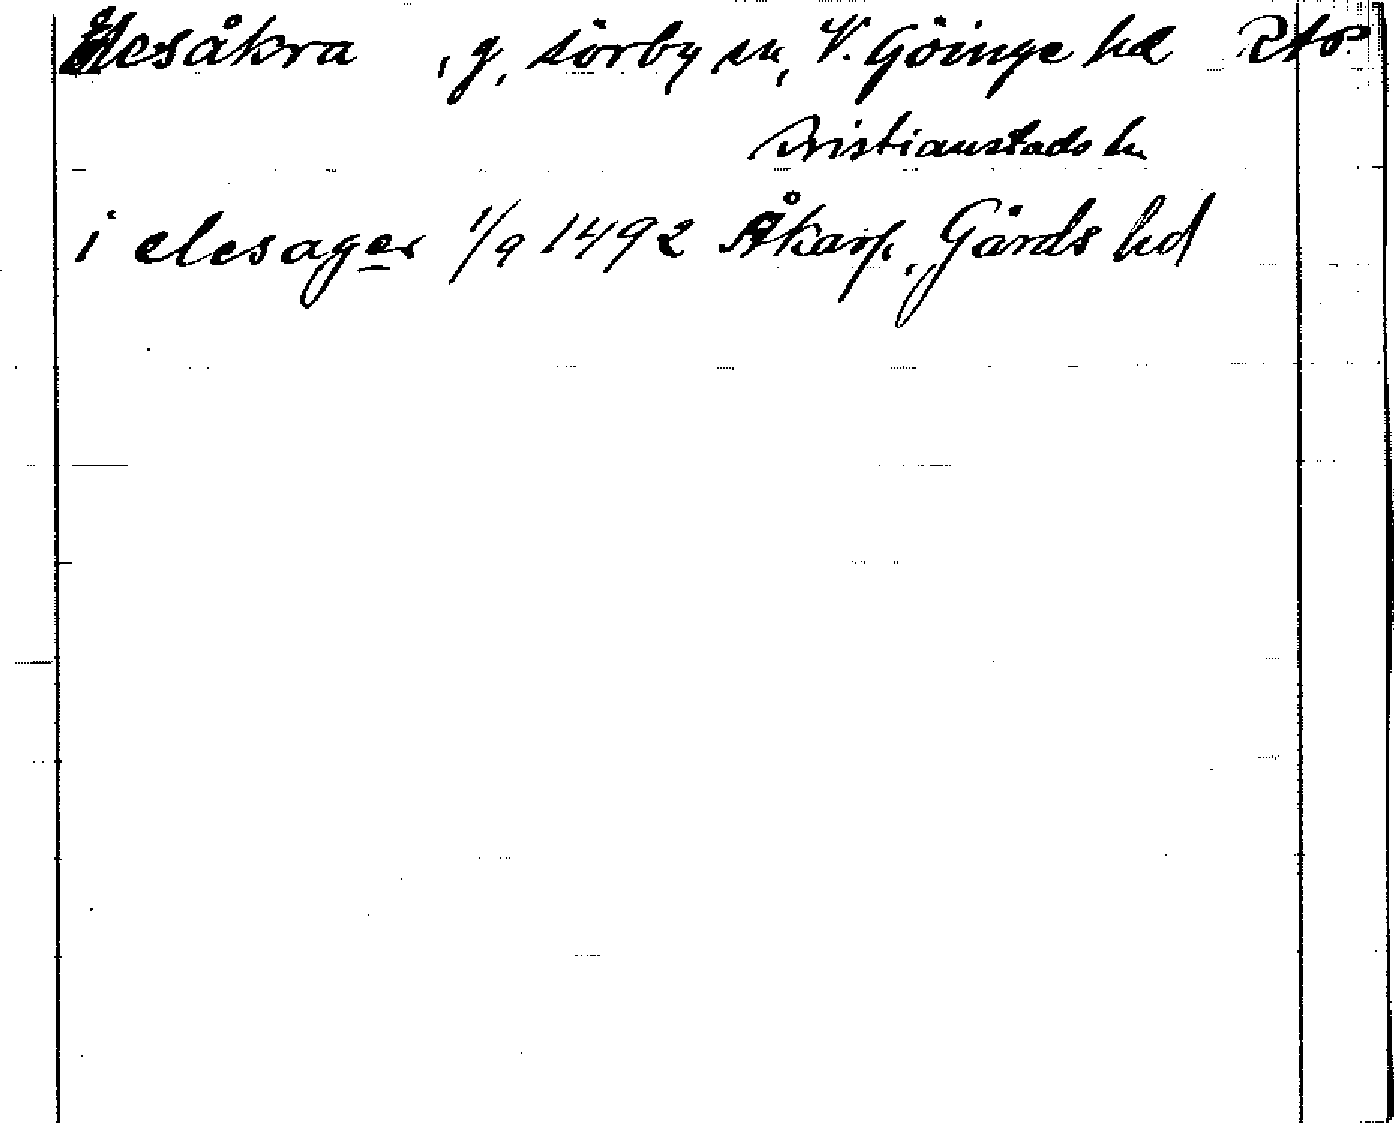 Elesåkra , g, Sörby sn, V. Göinge hd
Kristianstads ln
i elesager 1/9 1492 Åkarp, Gärds hd